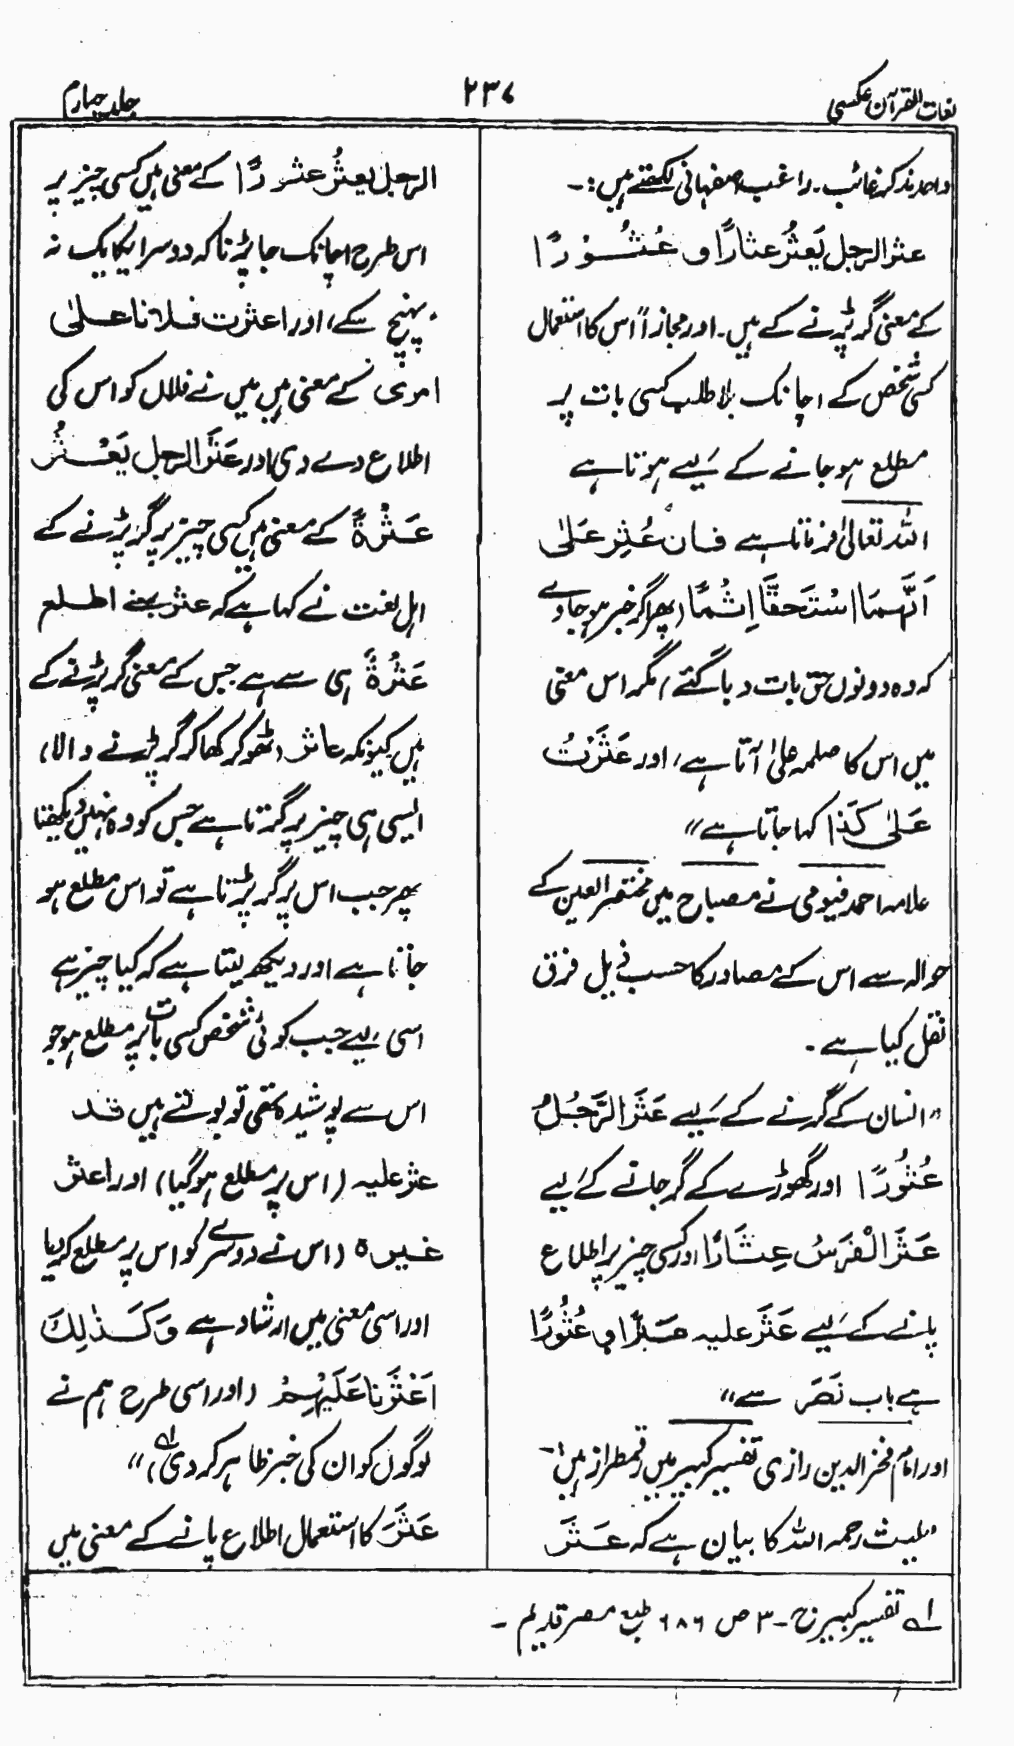 لغات القرآن عکسی
۲۳۷
جلد چہارم
واحد مذکر غائب۔ راغب اصفہانی لکھتے ہیں:۔
عثر الرجل یَعثُرُ عثاراً و عُثُوْرًا
کے معنی گر پڑنے کے ہیں۔ اور مجازاً اس کا استعمال
کسی شخص کے اچانک بلا طلب کسی بات پر
مطلع ہو جانے کے لیے ہوتا ہے
اللہ تعالیٰ فرماتا ہے فان عُثِرَ عَلٰی
اَنَّهُمَا اسْتَحَقَّا اِثْمًا (پھر اگر خبر ہو جاوے
کہ وہ دونوں حق بات دبا گئے) مگر اس معنی
میں اس کا صلہ علیٰ آتا ہے، اور عَثَرْتُ
عَلٰی کَذَا کہا جاتا ہے"
علامہ احمد فیومی نے مصباح میں مختصر العین کے
حوالہ سے اس کے مصادر کا حسب ذیل فرق
نقل کیا ہے۔
"انسان کے گرنے کے لیے عَثَرَ الرَّجُلُ
عُثُوْرًا اور گھوڑے کے گر جانے کے لیے
عَثَرَ الْفَرَسُ عِثَارًا اور کسی چیز پر اطلاع
پانے کے لیے عَثَرَ علیہ عَثْرًا و عُثُورًا
ہے باب نَصَرَ سے"
اور امام فخر الدین رازی تفسیر کبیر میں رقمطراز ہیں:۔
"لیث رحمہ اللہ کا بیان ہے کہ عَثَرَ
الرجل یعثُرُ عثورًا کے معنی ہیں کسی چیز پر
اس طرح اچانک جا پڑنا کہ دوسرا یکایک نہ
پہنچ سکے، اور اعثرت فلانا علیٰ
امری کے معنی ہیں میں نے فلاں کو اس کی
اطلاع دے دی اور عَثَرَ الرجل یَعْثُرُ
عَثْرَةً کے معنی ہیں کسی چیز پر گر پڑنے کے
اہل لغت نے کہا ہے کہ عثر بمعنے اطلع
عَثْرَةً ہی سے ہے جس کے معنی گر پڑنے کے
ہیں کیونکہ عاثر (ٹھوکر کھا کر گر پڑنے والا)
ایسی ہی چیز پر گرتا ہے جس کو وہ نہیں دیکھتا
پھر جب اس پر گر پڑتا ہے تو اس مطلع ہو
جاتا ہے اور دیکھ لیتا ہے کہ کیا چیز ہے
اسی لیے جب کوئی شخص کسی بات پر مطلع ہو جو
اس سے پوشیدہ تھی تو بولتے ہیں قد
عثر علیہ (اس پر مطلع ہو گیا) اور اعثر
غیرہ (اس نے دوسرے کو اس پر مطلع کر دیا
اور اسی معنی میں ارشاد ہے وَکَذٰلِكَ
اَعْثَرْنَا عَلَیْهِمْ (اور اسی طرح ہم نے
لوگوں کو ان کی خبر ظاہر کر دی)"
عَثَرَ کا استعمال اطلاع پانے کے معنی میں
لہ تفسیر کبیر ج۔۳ ص ۶۸۶ طبع مصر قدیم۔